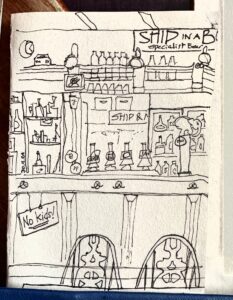 SHIP IN A B
specialist
SHIP
No Kids!